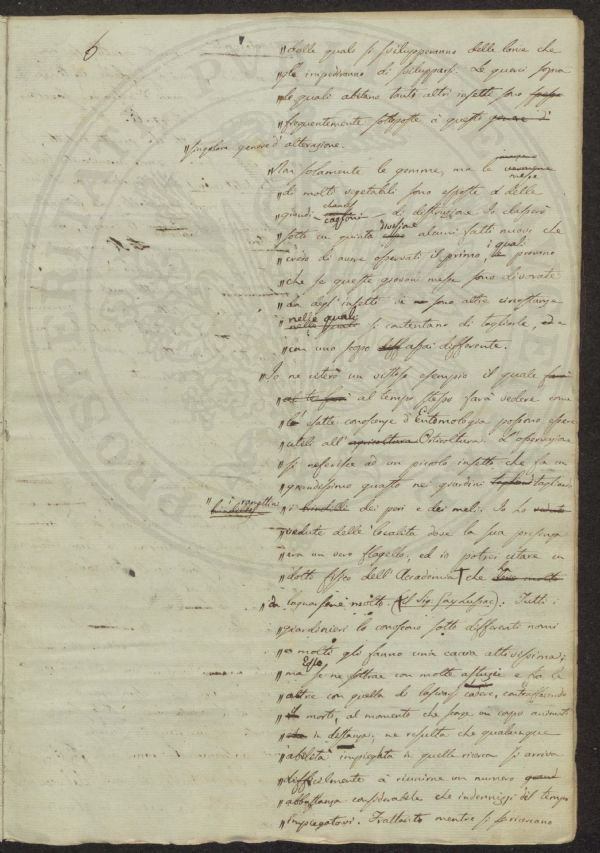 6
"dalle quali si svilupperanno delle larve che
"le impediranno di svilupparsi. Le querci sopra
"le quali abitano tanti altri insetti sono spesso
"frequentemente sottoposte a questo genere di
"singolar genere d'alterazione.
"Non solamente le gemme, ma le messe
"di molti vegetabili sono esposte a delle
"grandi cagioni di distruzione. Io classerò
"sotto un quinta divisione alcuni fatti nuovi che
"credo di avere osservati il primo, i quali provano
"che se queste giovani messe sono divorate
"da degl'insetti ve sono altre circostanze
"nelle quali si contentano di tagliarle, ed a
"con uno scopo assai differente.
"Io ne citerò un vistoso esempio il quale
"al tempo stesso farà vedere come
"le esatte conoscenze d'Entomologia possono essere
"utili all' agricoltura Orticoltura. L'osservazione
"si riferisce ad un piccolo insetto che fa un
"grandissimo guasto nei giardini tagliando
"i ramettini
"i dei peri e dei meli. Io ho veduto
"vedute delle località dove la sua presenza
"era un vero flagello, ed io potrei citare un
"dotto fisico dell'Accademia che ha
"da lagnarsene molto. (il Sig. Gay Lussac). Tutti i
"giardinieri lo conoscono sotto differenti nomi
"e molti gli fanno una caccia attivissima;
"ma Esso se ne sottrae con molte astuzie e fra le
"altre con quella di lasciarsi cadere, contraffacendo
"il morto, al momento che scorge un corpo animato
"in distanza; ne resulta che qualunque
"abilità impiegata in quella ricerca si arriva
"difficilmente a riunirne un numero
"abbastanza considerabile che indennizzi del tempo
"impiegatovi. Frattanto mentre si